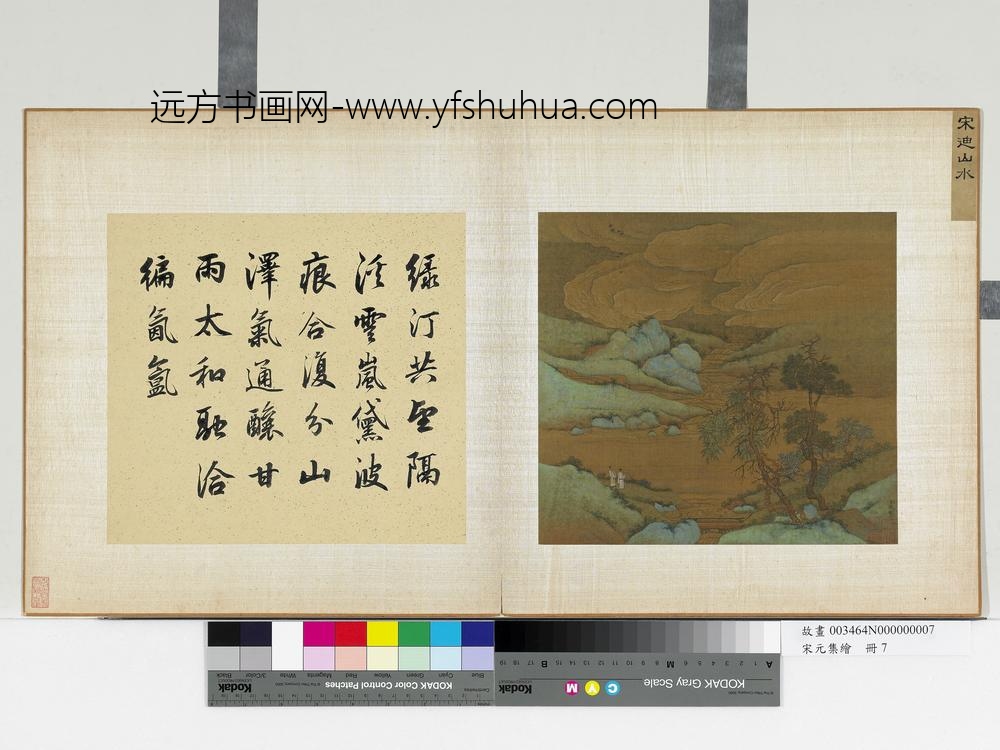 远方书画网-www.yfshuhua.com
宋迪山水
綠汀共望隔
溪雲嵐黛波
痕合復分山
澤氣通釀甘
雨太和融洽
徧氤氳
故畫 003464N000000007
宋元集繪 冊 7
KODAK Color Control Patches
Kodak
Blue Cyan Green Yellow Red Magenta White 3/Color Black
KODAK Gray Scale
Kodak
C Y M
A 1 2 3 4 5 6 M 8 9 10 11 12 13 14 15 B 17 18 19